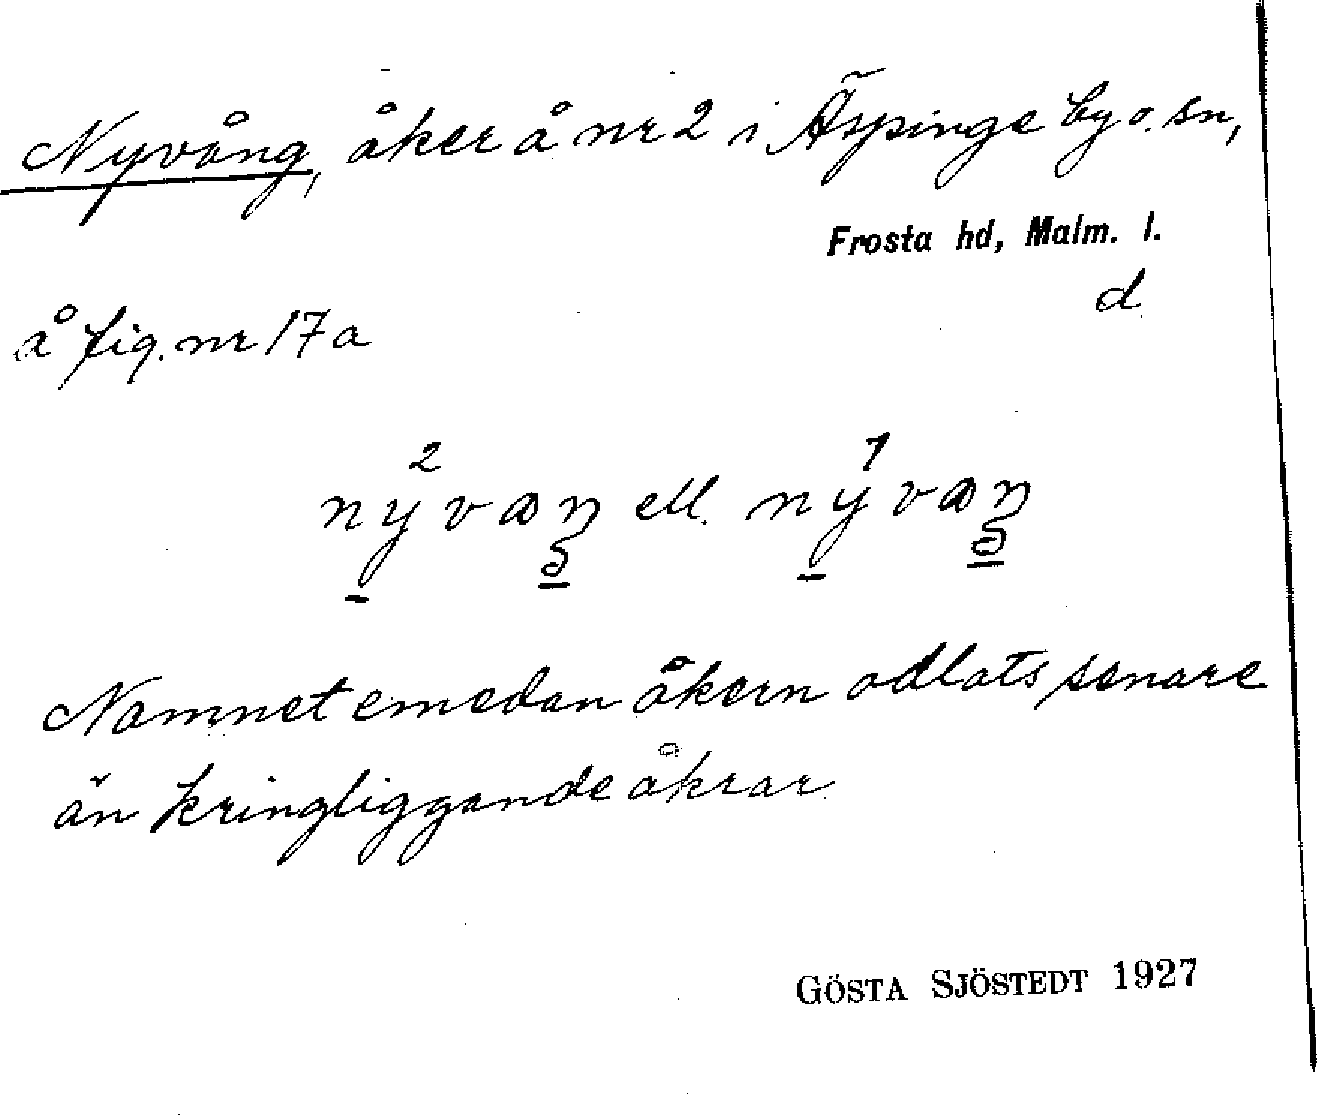 Nyvång, åker å nr 2 i Äspinge by o. sn,
Frosta hd, Malm. l.
d
å fig. nr 17a
ell.
Namnet emedan åkern odlats senare
än kringliggande åkrar.
GÖSTA SJÖSTEDT 1927